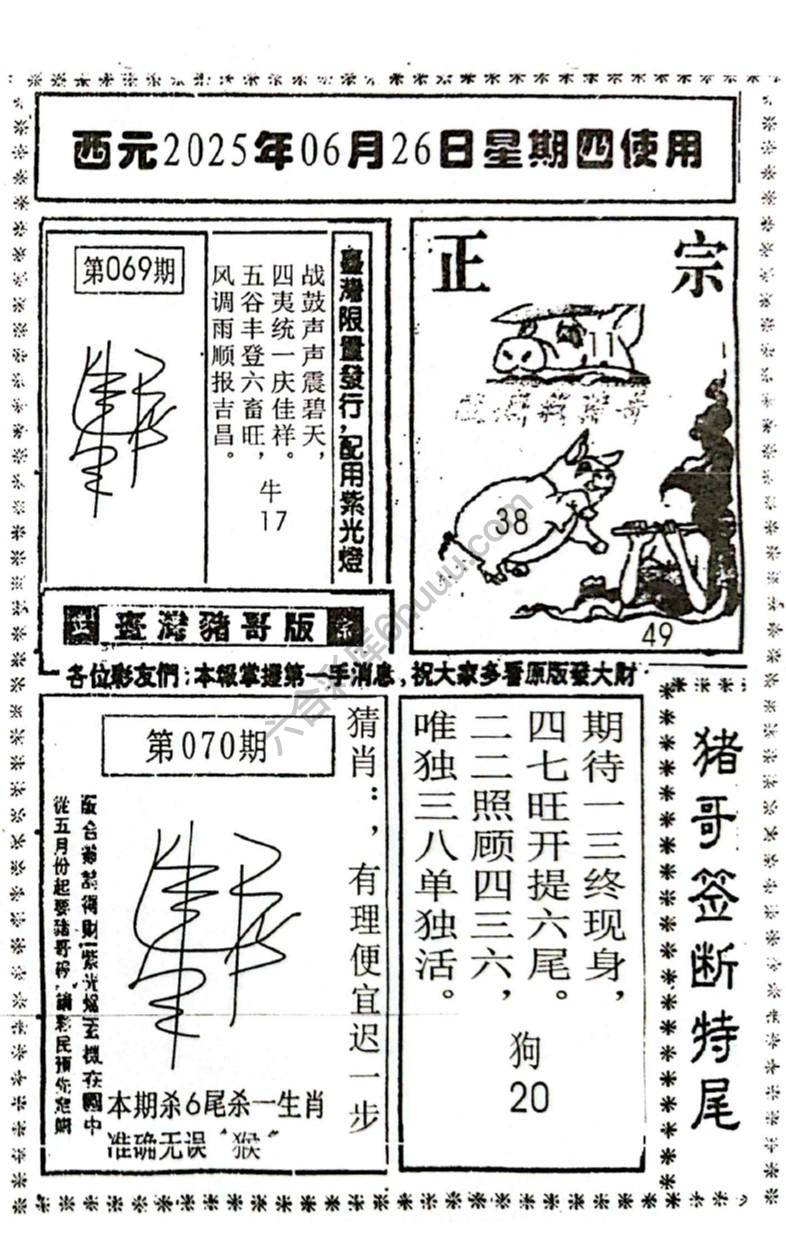 西元2025年06月26日星期四使用
第069期
臺灣限量發行，配用紫光燈
战鼓声声震碧天，
四夷统一庆佳祥。
五谷丰登六畜旺，
风调雨顺报吉昌。
牛
17
正宗
11
38
49
臺灣豬哥版
各位彩友們：本報掌握第一手消息，祝大家多看原版發大財
第070期
猜肖：，有理便宜迟一步
從五月份起要豬哥
本期杀6尾杀一生肖
准确无误“猴”
期待一三终现身，
四七旺开提六尾。
二二照顾四三六，
唯独三八单独活。
狗
20
猪哥签断特尾
六合彩库6huuu.com